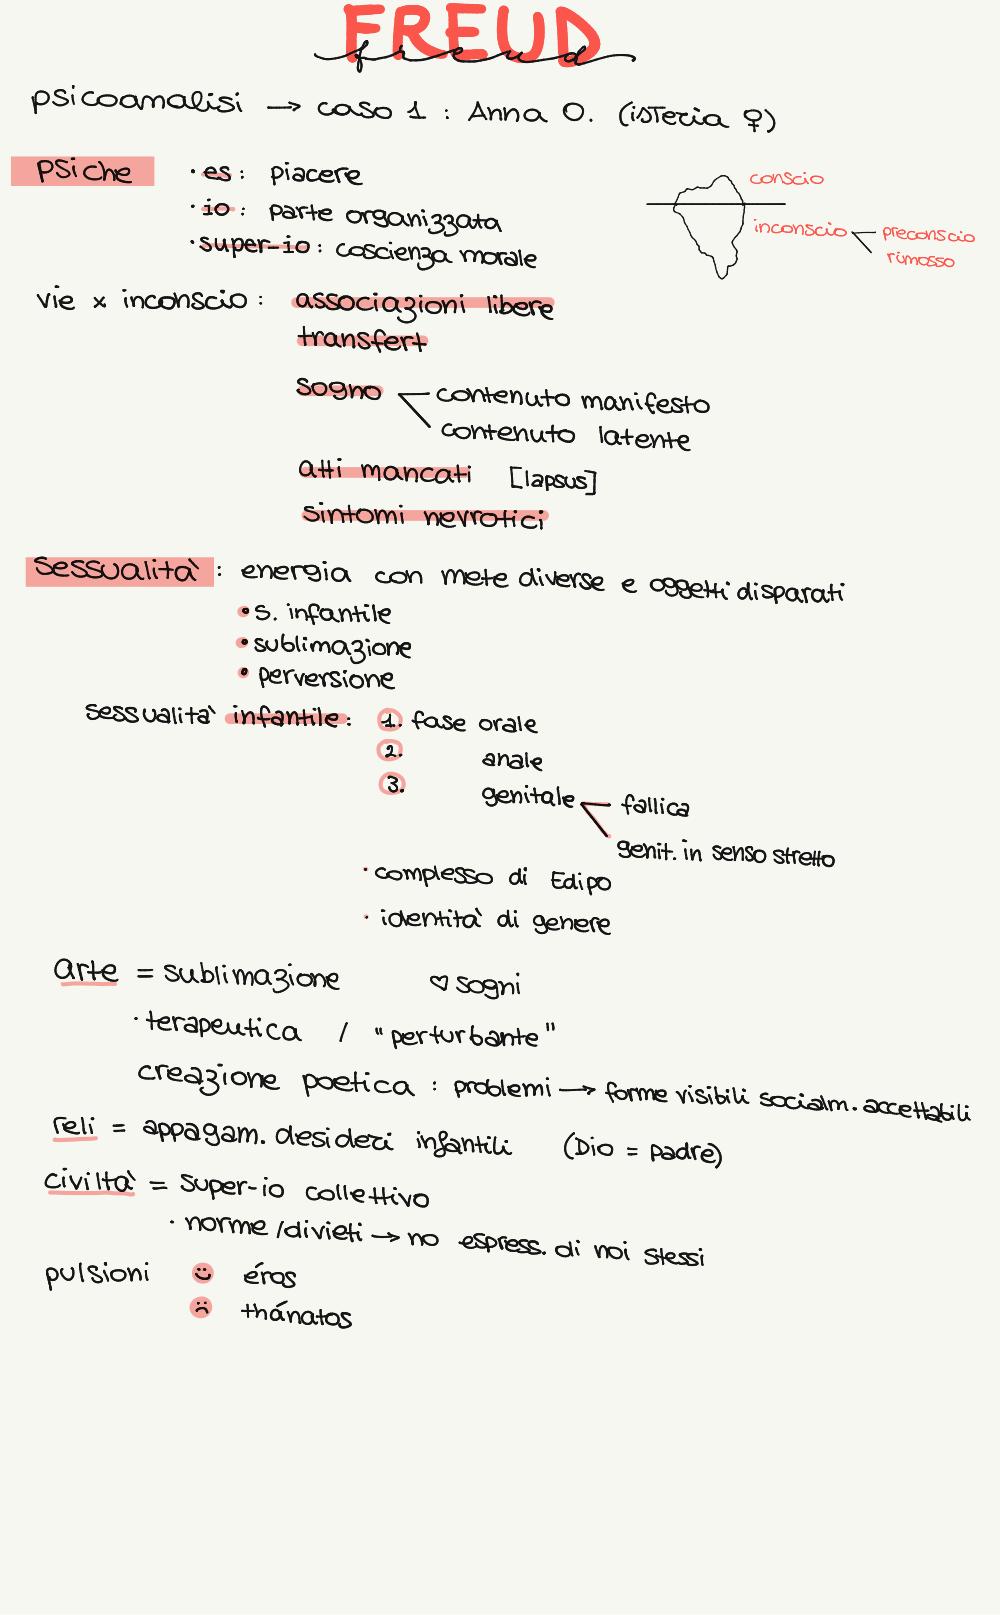 FREUD
freud
psicoanalisi → caso 1 : Anna O. (isteria ♀)
psiche · es : piacere
· io : parte organizzata
· super-io : coscienza morale
conscio
inconscio preconscio
rimosso
vie x inconscio : associazioni libere
transfert
sogno contenuto manifesto
contenuto latente
atti mancati [lapsus]
sintomi nevrotici
sessualità : energia con mete diverse e oggetti disparati
• s. infantile
• sublimazione
• perversione
sessualità infantile : 1. fase orale
2. anale
3. genitale fallica
genit. in senso stretto
· complesso di Edipo
· identità di genere
arte = sublimazione ♡ sogni
· terapeutica / "perturbante"
creazione poetica : problemi → forme visibili socialm. accettabili
reli = appagam. desideri infantili (Dio = padre)
civiltà = super-io collettivo
· norme / divieti → no espress. di noi stessi
pulsioni éros
thánatos